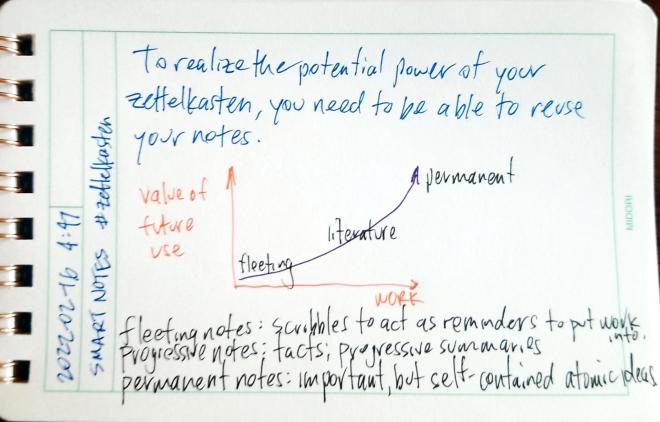 To realize the potential power of your
zettelkasten, you need to be able to reuse
your notes.
value of
future
use
permanent
literature
fleeting
WORK
fleeting notes: scribbles to act as reminders to put work
into.
Progressive notes: facts; progressive summaries
permanent notes: important, but self-contained atomic ideas
2022-02-16 4:47
SMART NOTES #zettelkasten
MIDORI